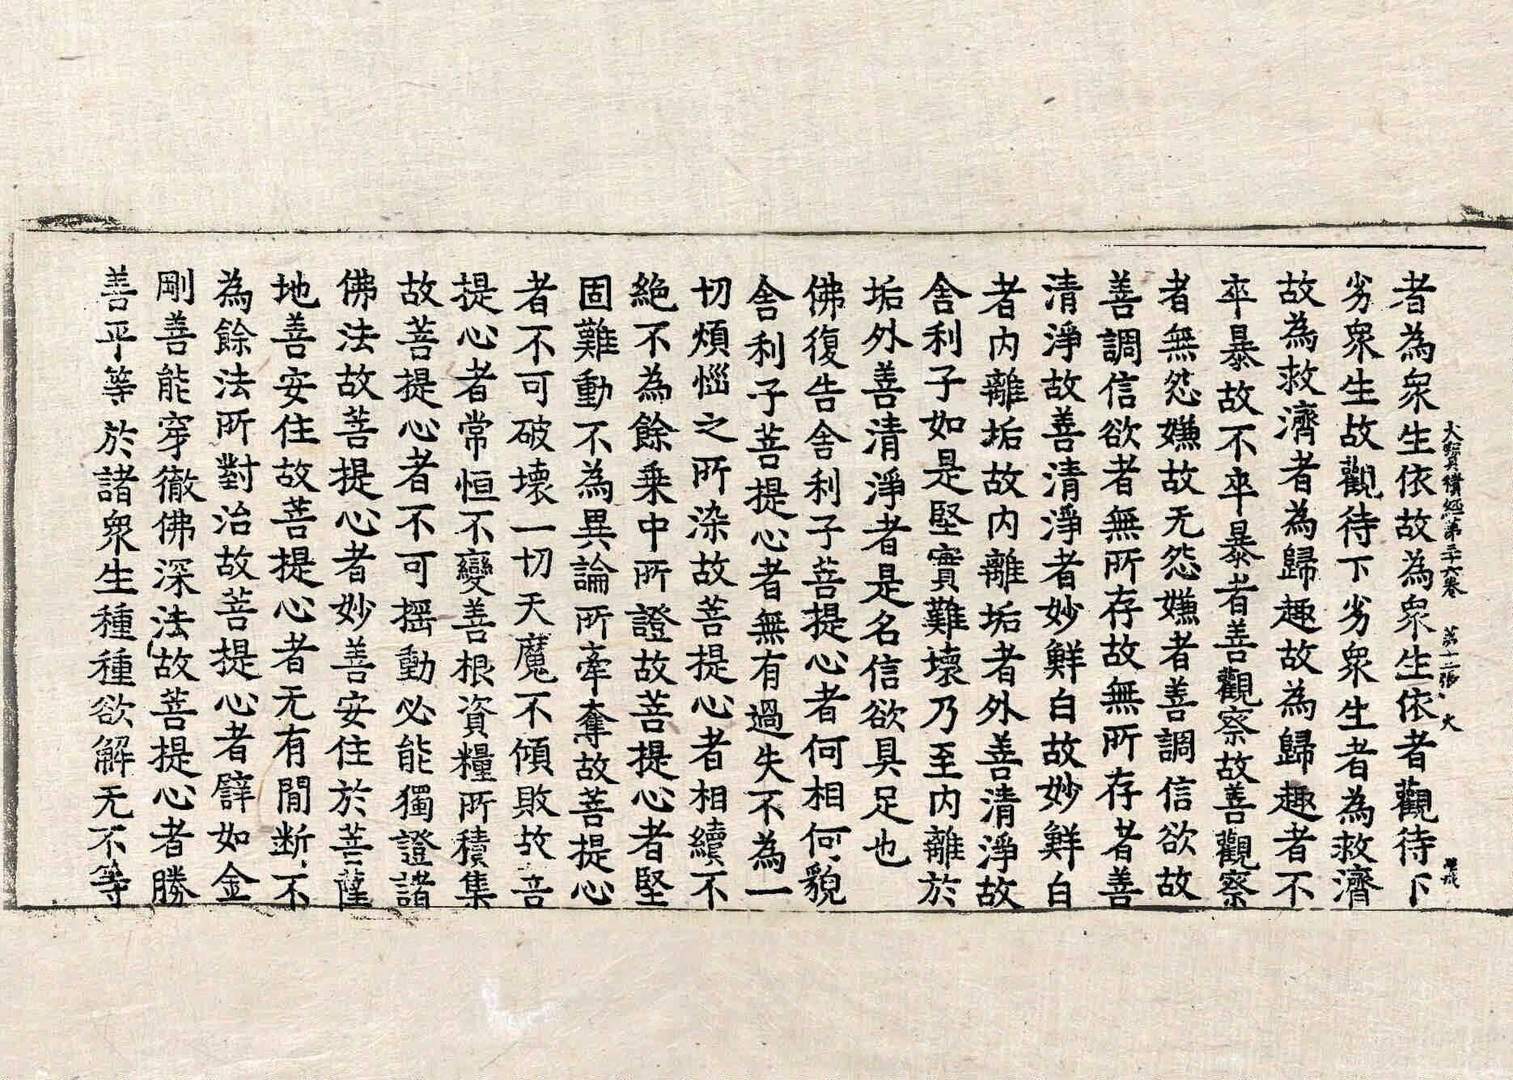 大寶積經第三十六卷 第十二張 火
者為衆生依故為衆生依者觀待下
劣衆生故觀待下劣衆生者為救濟
故為救濟者為歸趣故為歸趣者不
卒暴故不卒暴者善觀察故善觀察
者無怨嫌故无怨嫌者善調信欲故
善調信欲者無所存故無所存者善
清淨故善清淨者妙鮮白故妙鮮白
者内離垢故内離垢者外善清淨故
舍利子如是堅實難壞乃至内離於
垢外善清淨者是名信欲具足也
佛復告舍利子菩提心者何相何貌
舍利子菩提心者無有過失不為一
切煩惱之所染故菩提心者相續不
絶不為餘乗中所證故菩提心者堅
固難動不為異論所牽奪故菩提心
者不可破壞一切天魔不傾敗故菩
提心者常恒不變善根資糧所積集
故菩提心者不可揺動必能獨證諸
佛法故菩提心者妙善安住於菩薩
地善安住故菩提心者无有閒断不
為餘法所對治故菩提心者譬如金
剛善能穿徹佛深法故菩提心者勝
善平等於諸衆生種種欲解无不等